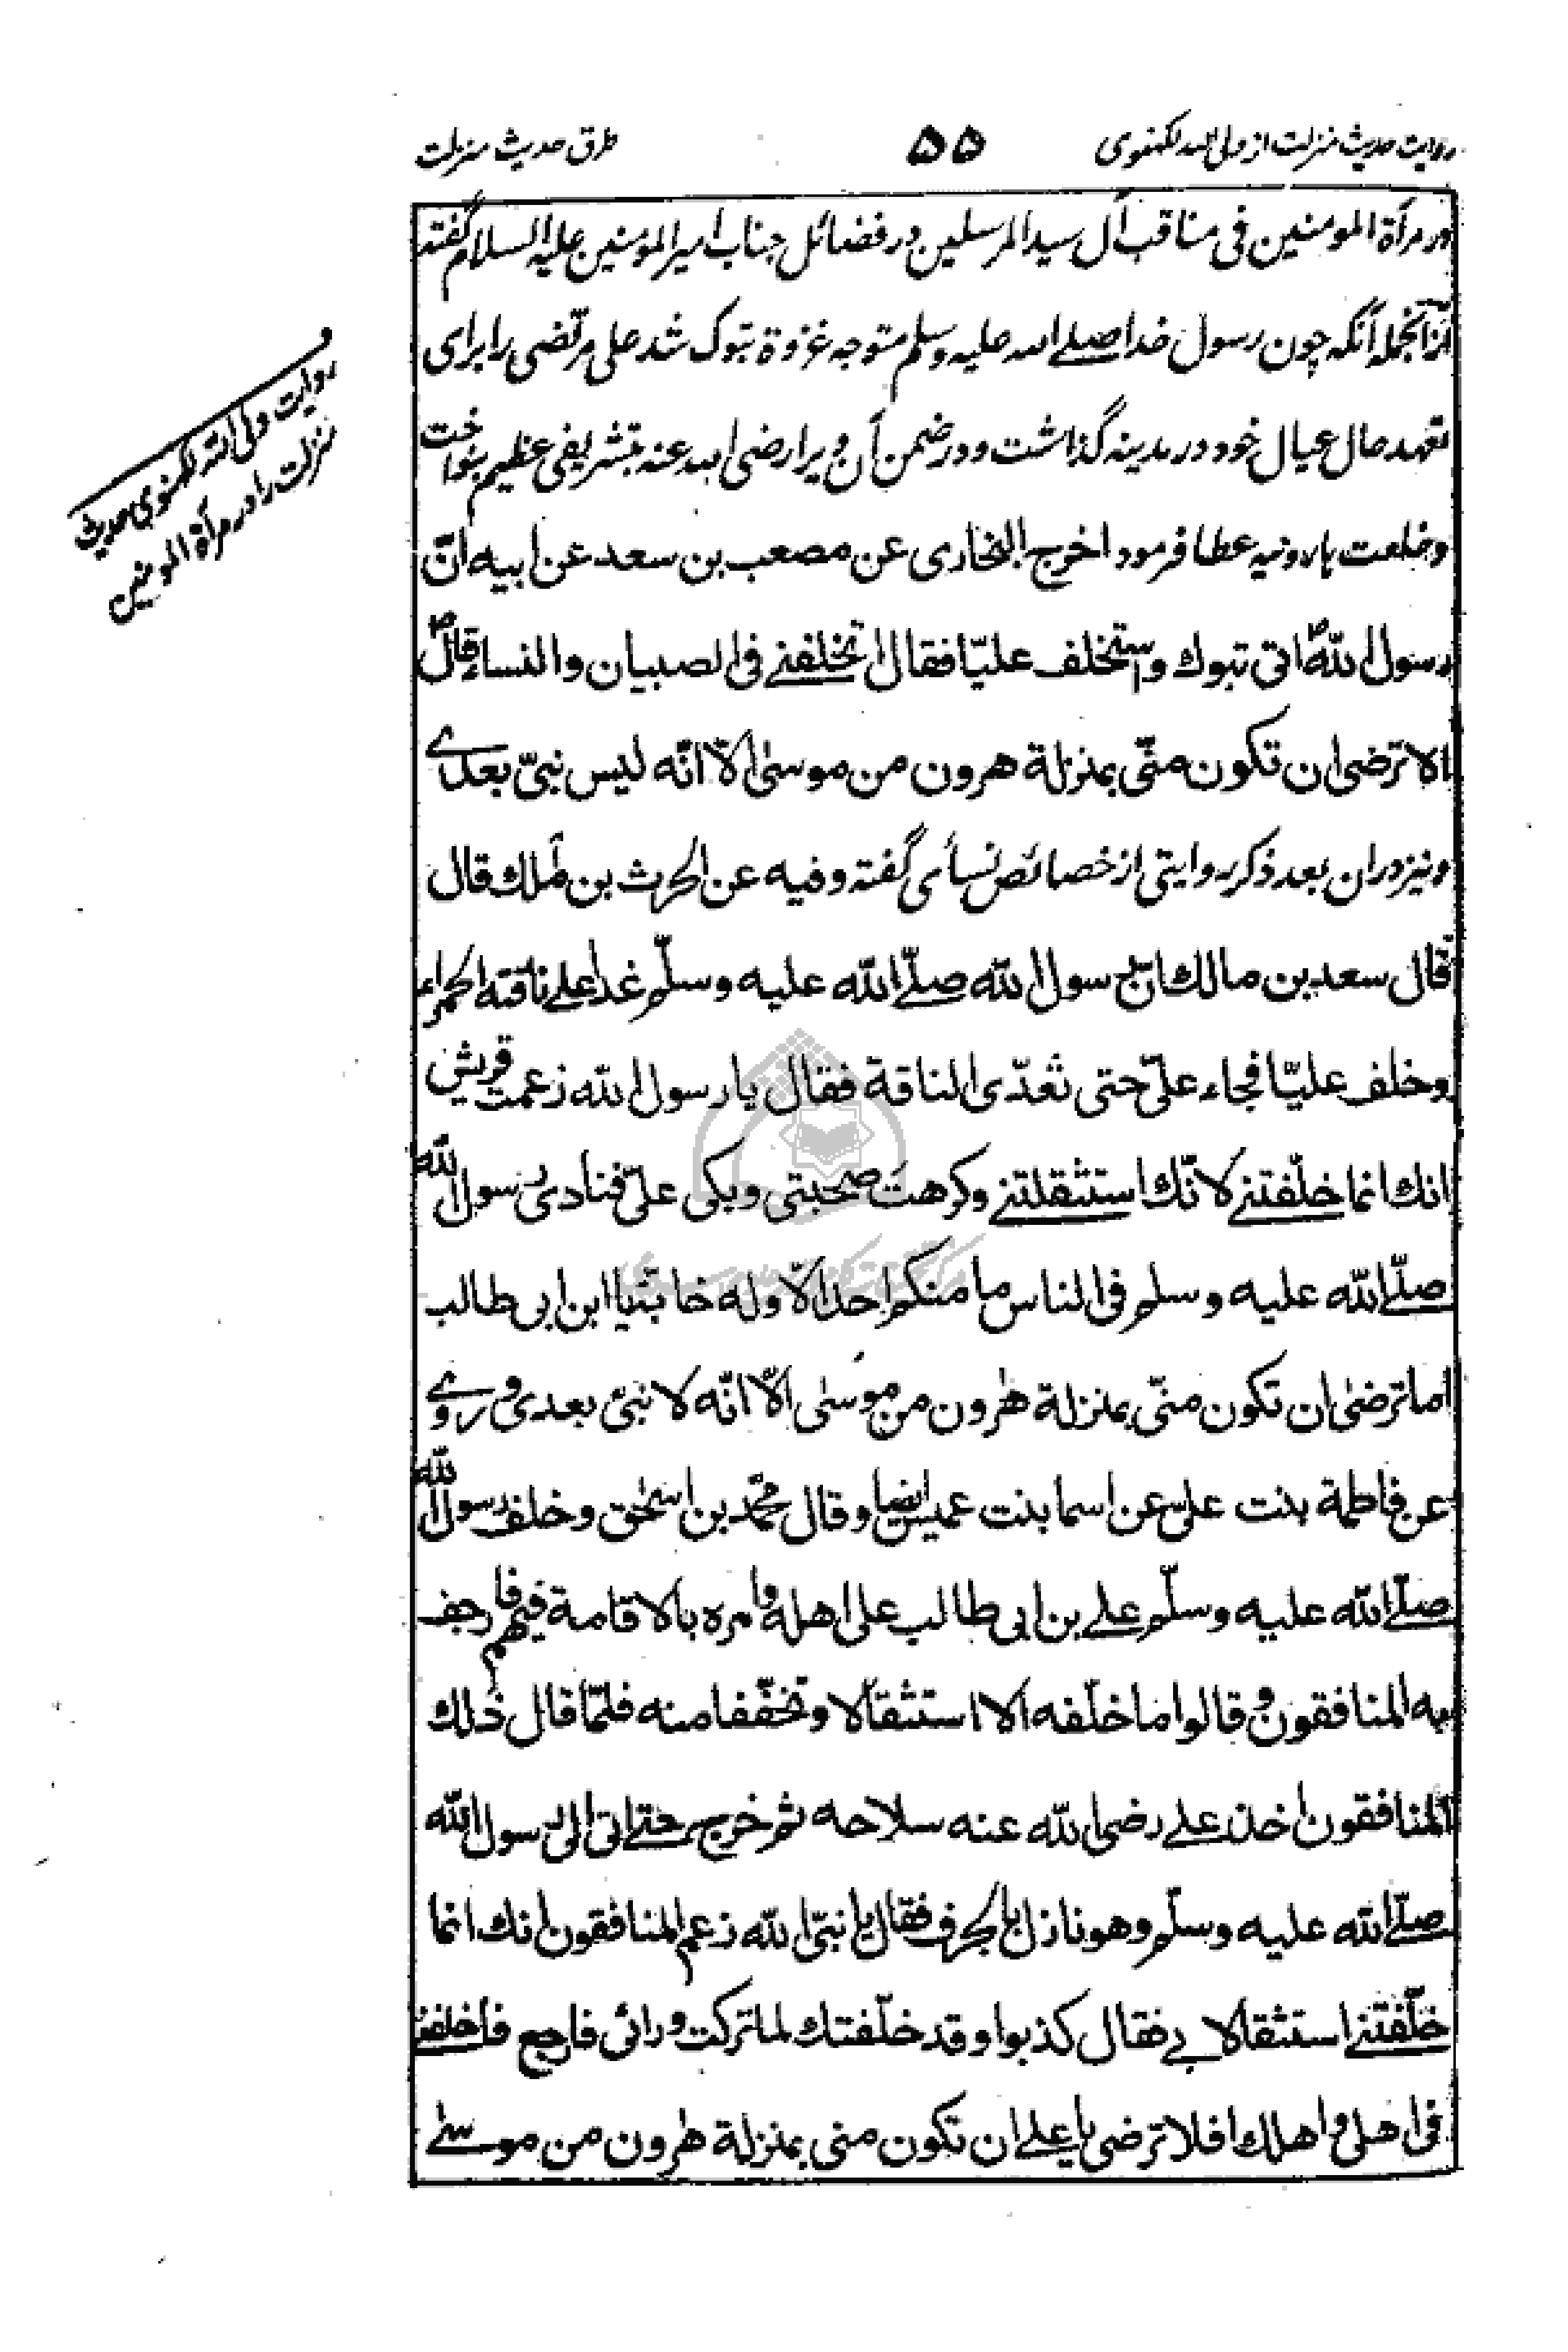 روایت حدیث منزلت از ولی الله لکهنوی ۵۵ طرق حدیث منزلت
در مرآة المومنین فی مناقب آل سید المرسلین در فضائل جناب امیر المؤمنین علیه السلام گفته
ازانجمله آنکه چون رسول خدا صلے الله علیه وسلم متوجه غزوة تبوک شد علی مرتضی را برای
تعهد حال عیال خود در مدینه گذاشت و در ضمن آن ویرا رضی الله عنه بتشریفی عظیم بنواخت
وخلعت هارونیه عطا فرمود اخرج البخاری عن مصعب بن سعد عن ابیه انّ
رسول اللهؐ اتی تبوك واستخلف علیّا فقال اتخلفنے فی الصبیان والنساء قالؐ
الا ترضی ان تکون منّی بمنزلة هرون من موسیٰ الّا انّه لیس نبیّ بعدے
ونیز دران بعد ذکر روایتی از خصائص نسأی گفته وفیه عن الحرث بن مٰلك قال
قال سعد بن مالك انّ رسول الله صلّے الله علیه وسلّم غدا علے ناقته الحمراء
وخلف علیّا فجاء علیّ حتی تعدّی الناقة فقال یا رسول الله زعمت قریش
انك انما خلّفتنے لانّك استثقلتنے وکرهت صحبتی وبکی علیّ فنادی رسول الله
صلّے الله علیه وسلم فی الناس ما منکم احد الّا وله خابّة یا ابن ابی طالب
اما ترضیٰ ان تکون منّی بمنزلة هٰرون من موسٰی الّا انّه لا نبیّ بعدی وروے
عن فاطمة بنت علی عن اسما بنت عمیس ایضا وقال محمّد بن اسحٰق وخلف رسول الله
صلّے الله علیه وسلّم علے بن ابی طالب علی اهله وامره بالاقامة فیهم فارجف
به المنافقون وقالوا ما خلّفه الا استثقالا وتخفّفا منه فلمّا قال ذلك
المنافقون اخذ علے رضی الله عنه سلاحه ثم خرج حتے اتی الی رسول الله
صلّے الله علیه وسلّم وهو نازل بالجرف فقال یا نبیّ الله زعم المنافقون انك انما
خلّفتنے استثقالا بے فقال کذبوا وقد خلّفتك لما ترکت ورائی فارجع فاخلفنے
فی اهلی واهلك افلا ترضی یا علے ان تکون منی بمنزلة هٰرون من موسےٰ
روایت ولی الله لکهنوی حدیث
منزلت را در مرآة المومنین